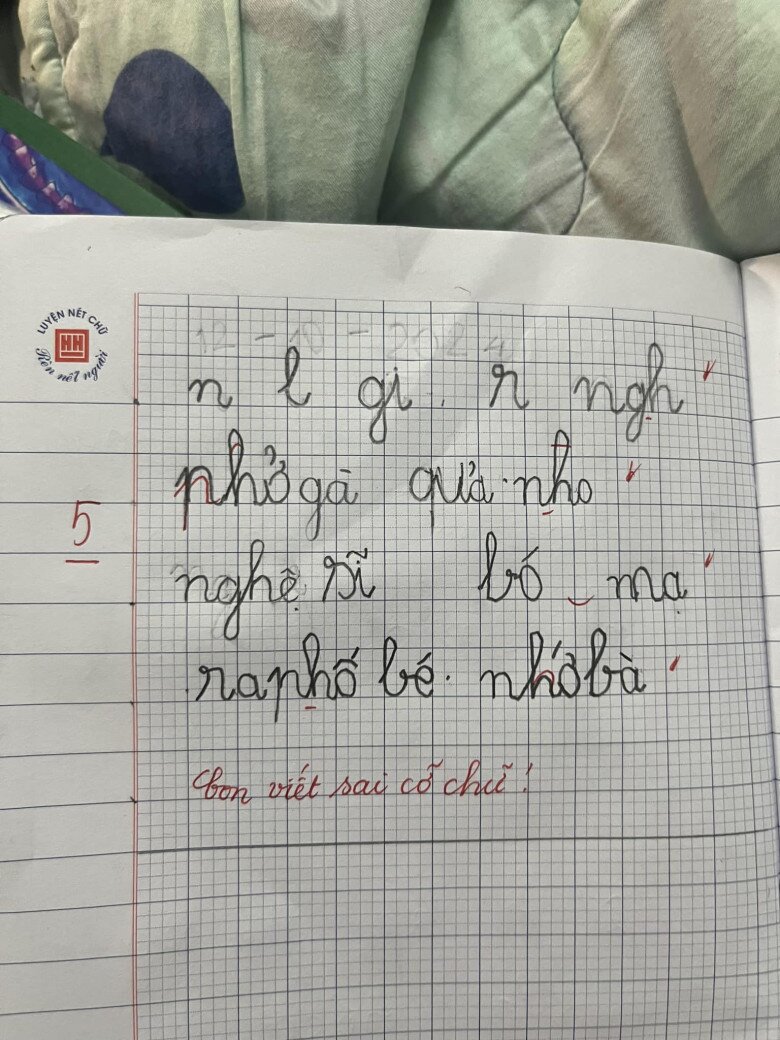 LUYỆN NẾT CHỮ
HH
Rèn nết người
12 - 10 - 2024
n l gi r ngh
phở gà quả nho
5
nghệ sĩ bó mạ
ra phố bé nhớ bà
Con viết sai cỡ chữ!